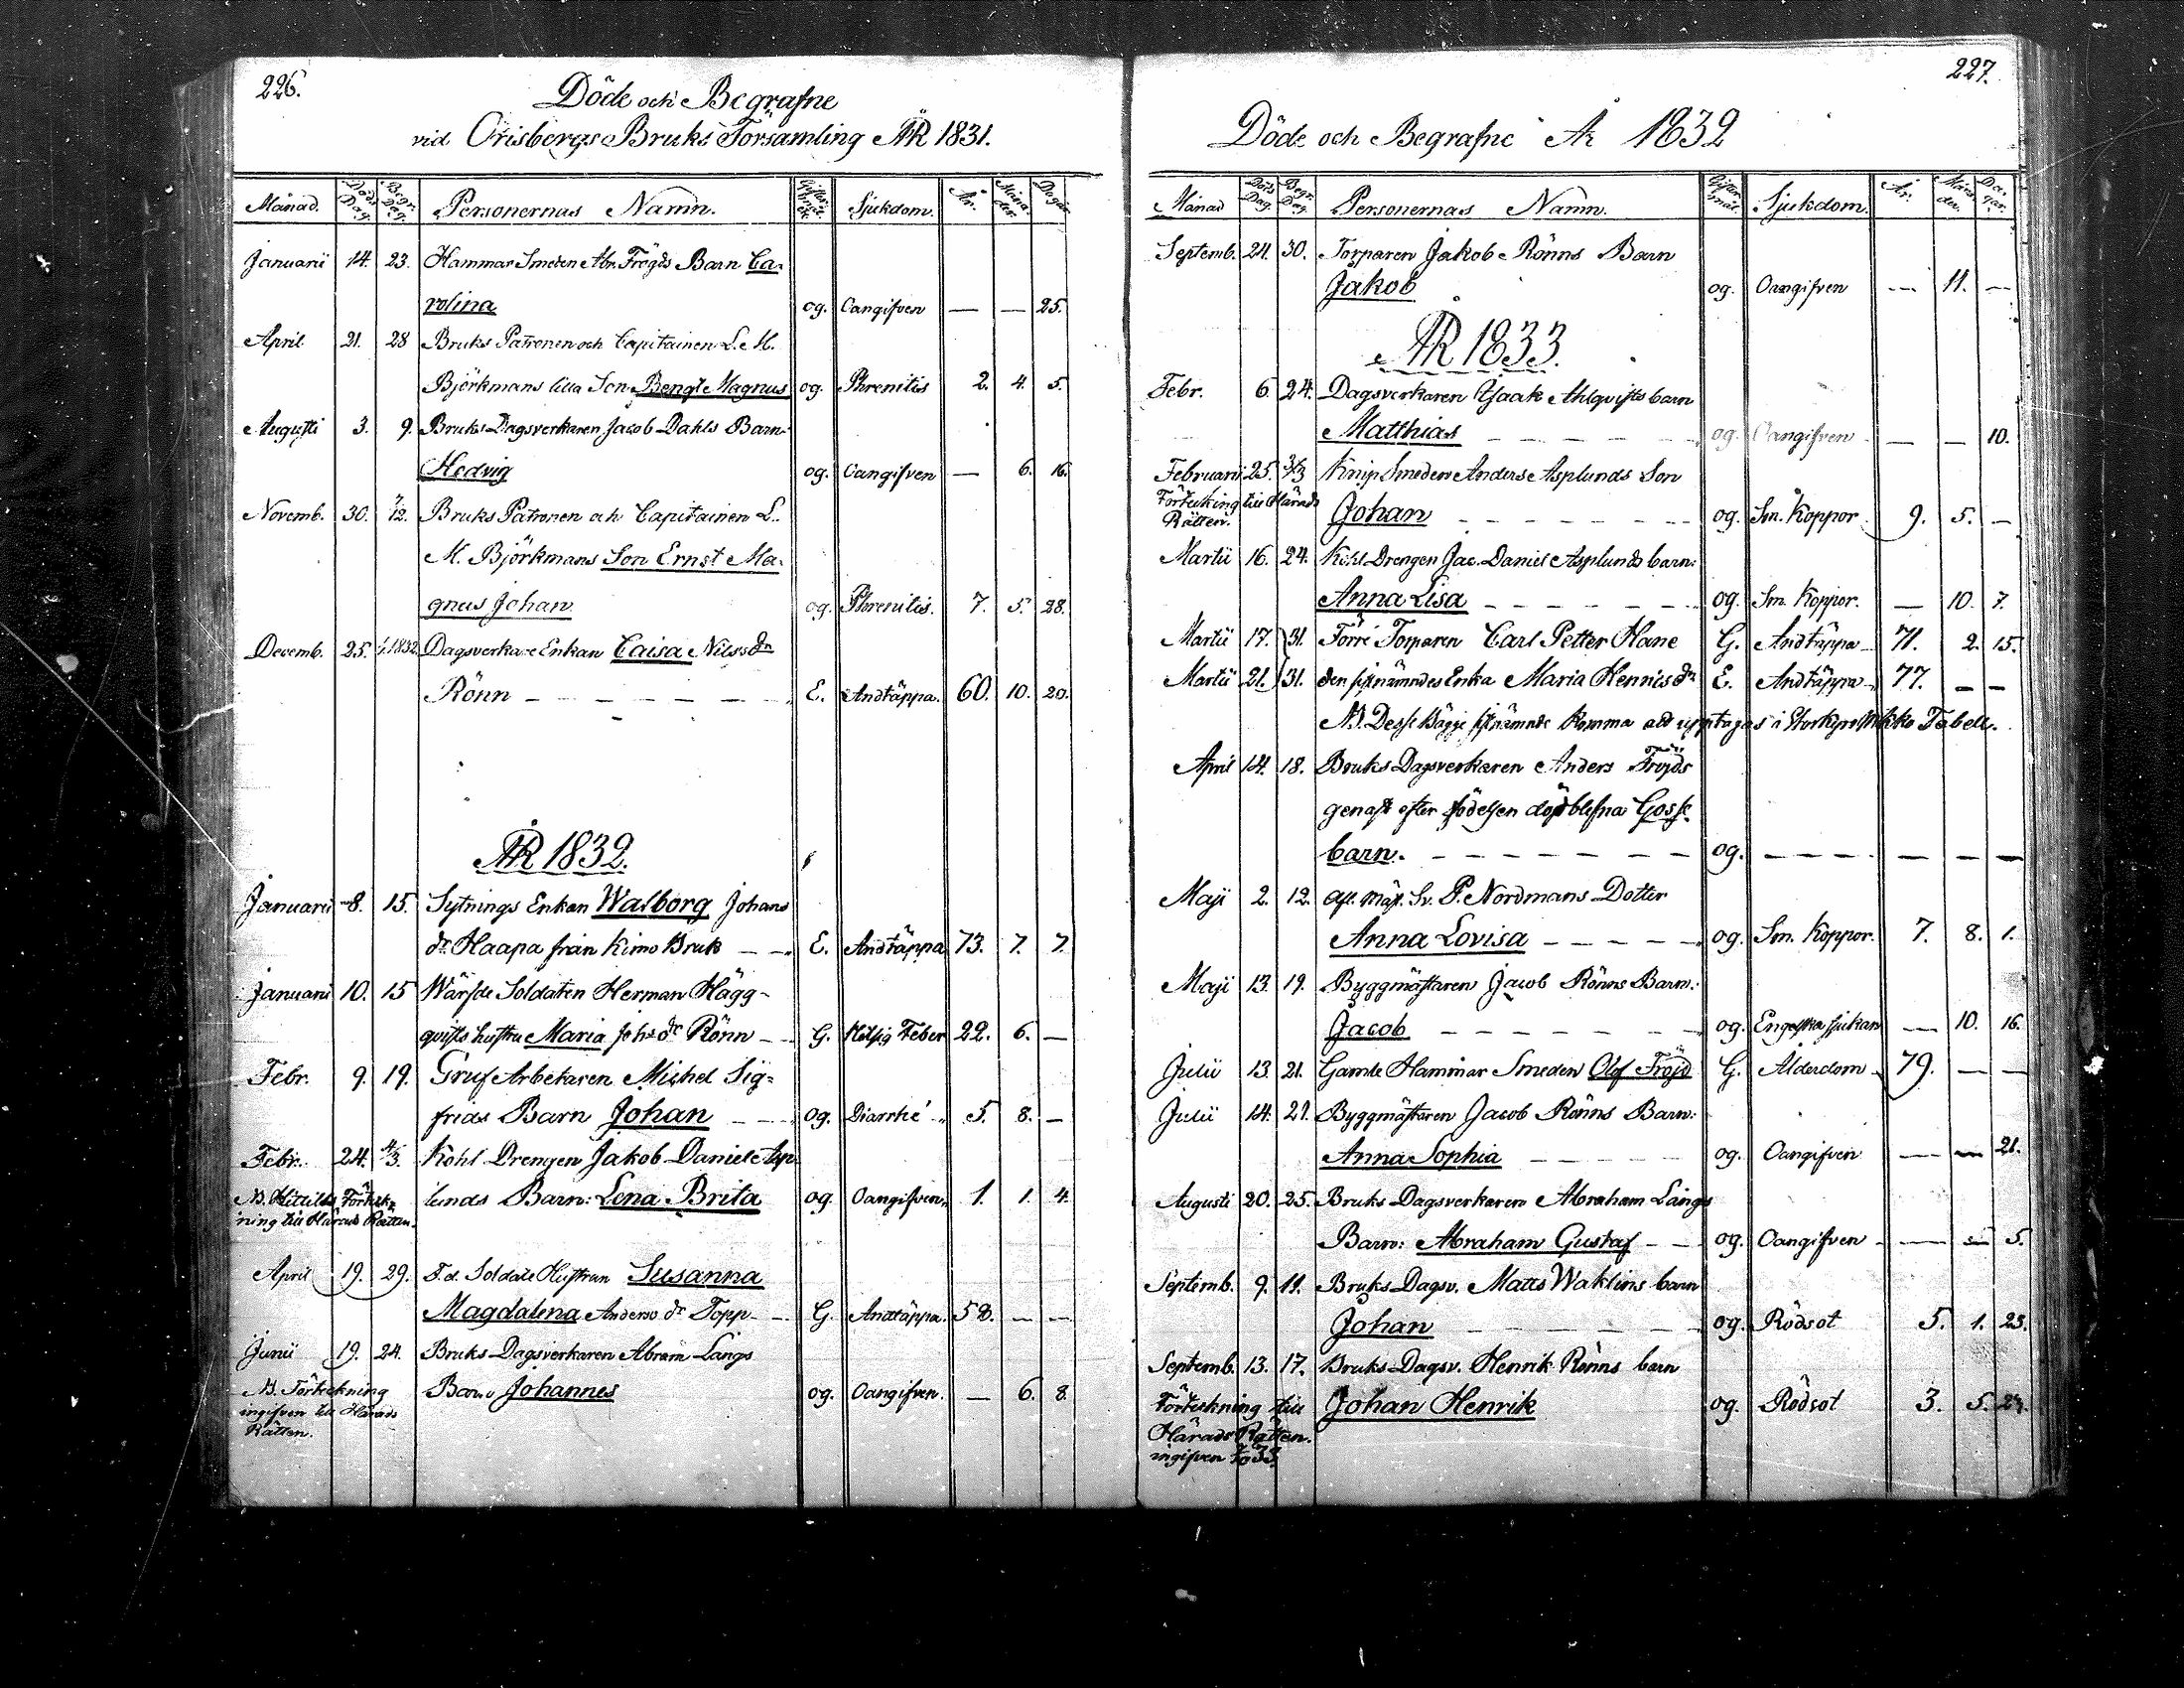 226.
Döde och Begrafne
vid Orisbergs Bruks Församling ÅR 1831.
Månad. Döds Dag. Begr. Dag. Personernas Namn. Sjukdom. År. Måna der. Dagar
Januarii 14. 23. Hammar Smeden Abr. Fröjds Barn Ca-
rolina og. Oangifven — — 25.
April 21. 28 Bruks Patronen och Capitainen L. M.
Björkmans lilla Son Bengt Magnus og. Phrenitis 2. 4. 5.
Augusti 3. 9. Bruks Dagsverkaren Jacob Dahls Barn
Hedvig og. Oangifven — 6. 16.
Novemb. 30. 7/12. Bruks Patronen och Capitainen L.
M. Björkmans Son Ernst Ma-
gnus Johan og. Phrenitis. 7. 5. 28.
Decemb. 25. 1832. Dagsverkare Enkan Caisa Nilss dr
Rönn — — — — — — E. Andtäppa. 60. 10. 20.
ÅR 1832.
Januarii 8. 15. Sytnings Enkan Walborg Johans
dr Haapa från Kimo Bruk — — E. Andtäppa 73. 7. 7.
Januarii 10. 15 Wärfde Soldaten Herman Hägg-
qvists hustru Maria Johs dr Rönn — G. Hitsig Feber 22. 6. —
Febr. 9. 19. Gruf Arbetaren Michel Sig-
frids Barn Johan — — og. Diarrhé 5. 8. —
Febr. 24. 4/3. Kohl Drengen Jakob Daniel Asp-
lunds Barn: Lena Brita og. Oangifven 1. 1. 4.
ning till Härads Rätten.
April 19. 29. F.d. Soldats Hustrun Susanna
Magdalena Anders dr Topp — G. Andtäppa. 58. — —
Junii 19. 24. Bruks Dagsverkaren Abram Långs
Barn Johannes og. Oangifven. — 6. 8.
N.B. Förteckning
ingifven till Härads
Rätten.
227.
Döde och Begrafne År 1832
Månad Döds Dag. Begr. Dag. Personernas Namn. Gifter mål. Sjukdom. År. Måna der. Da- gar.
Septemb. 24. 30. Torparen Jakob Rönns Barn
Jakob og. Oangifven — 11. —
ÅR 1833.
Febr. 6. 24. Dagsverkaren Isaak Ahlqvists barn
Matthias — — — — — og. Oangifven — — 10.
Februarii 25. 3/3 Knip Smeden Anders Asplunds Son
Förteckning till Härads
Rätten.
Johan — — — — — — og. Sm. Koppor 9. 5. —
Martii 16. 24. Kohl Drengen Jac. Daniel Asplunds barn:
Anna Lisa — — — — — og. Sm. Koppor. — 10. 7.
Martii 17. 31. Förre Torparen Carl Petter Hane G. Andtäppa 71. 2. 15.
Martii 21. 31. den sistnämndes Enka Maria Henrics dr E. Andtäppa 77. — —
N.B. Desse bägge sistnämnde komma att upptagas i Storkyro Tabell.
April 14. 18. Bruks Dagsverkaren Anders Fröjds
genast efter födelsen dödblefna Gosse
barn. — — — — — — — og. — — — — — — —
Maji 2. 12. P. Nordmans Dotter
Anna Lovisa — — — — og. Sm. Koppor. 7. 8. 1.
Maji 13. 19. Byggmästaren Jacob Rönns Barn:
Jacob — — — — — — og. Engelska sjukan — 10. 16.
Julii 13. 21. Gamle Hammar Smeden Olof Fröjd G. Ålderdom 79. — —
Julii 14. 21. Byggmästaren Jacob Rönns Barn:
Anna Sophia — — — og. Oangifven — — 21.
Augusti 20. 25. Bruks Dagsverkaren Abraham Långs
Barn: Abraham Gustaf — — og. Oangifven — — 5.
Septemb. 9. 11. Bruks Dagsv. Matts Waklins barn
Johan — — — — — og. Rödsot 5. 1. 23.
Septemb. 13. 17. Bruks Dagsv. Henrik Rönns barn
Förteckning till Johan Henrik og. Rödsot 3. 5.
Härads Rätten.
ingifven